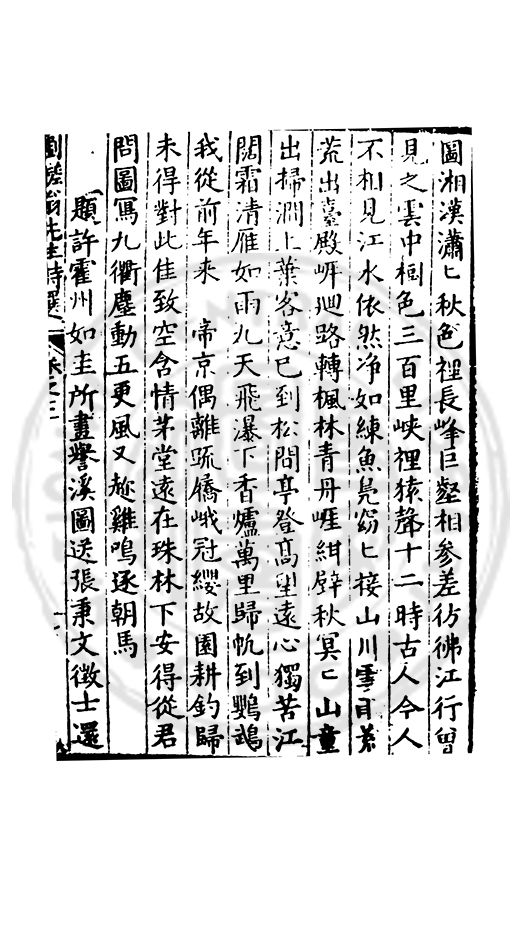 圖湘漢瀟匕秋色裡長峰巨壑相參差彷彿江行曾
見之雲中樹色三百里峽裡猿聲十二時古人今人
不相見江水依然净如練魚鳧窈匕接山川雲目茶
荒出臺殿岈𢌞路轉楓林青丹崕紺壁秋冥匕山童
出掃澗上葉客意已到松間亭登高望遠心獨苦江
闊霜清雁如雨九天飛瀑下香爐萬里歸帆到鸚鵡
我從前年來 帝京偶離疏屩峨冠纓故園耕釣歸
未得對此佳致空含情茅堂遠在珠林下安得從君
問圖寫九衢塵動五更風又趂雞鳴逐朝馬
題許霍州如圭所畫礬溪圖送張秉文徵士還
劉槎翁先生詩選 卷之三